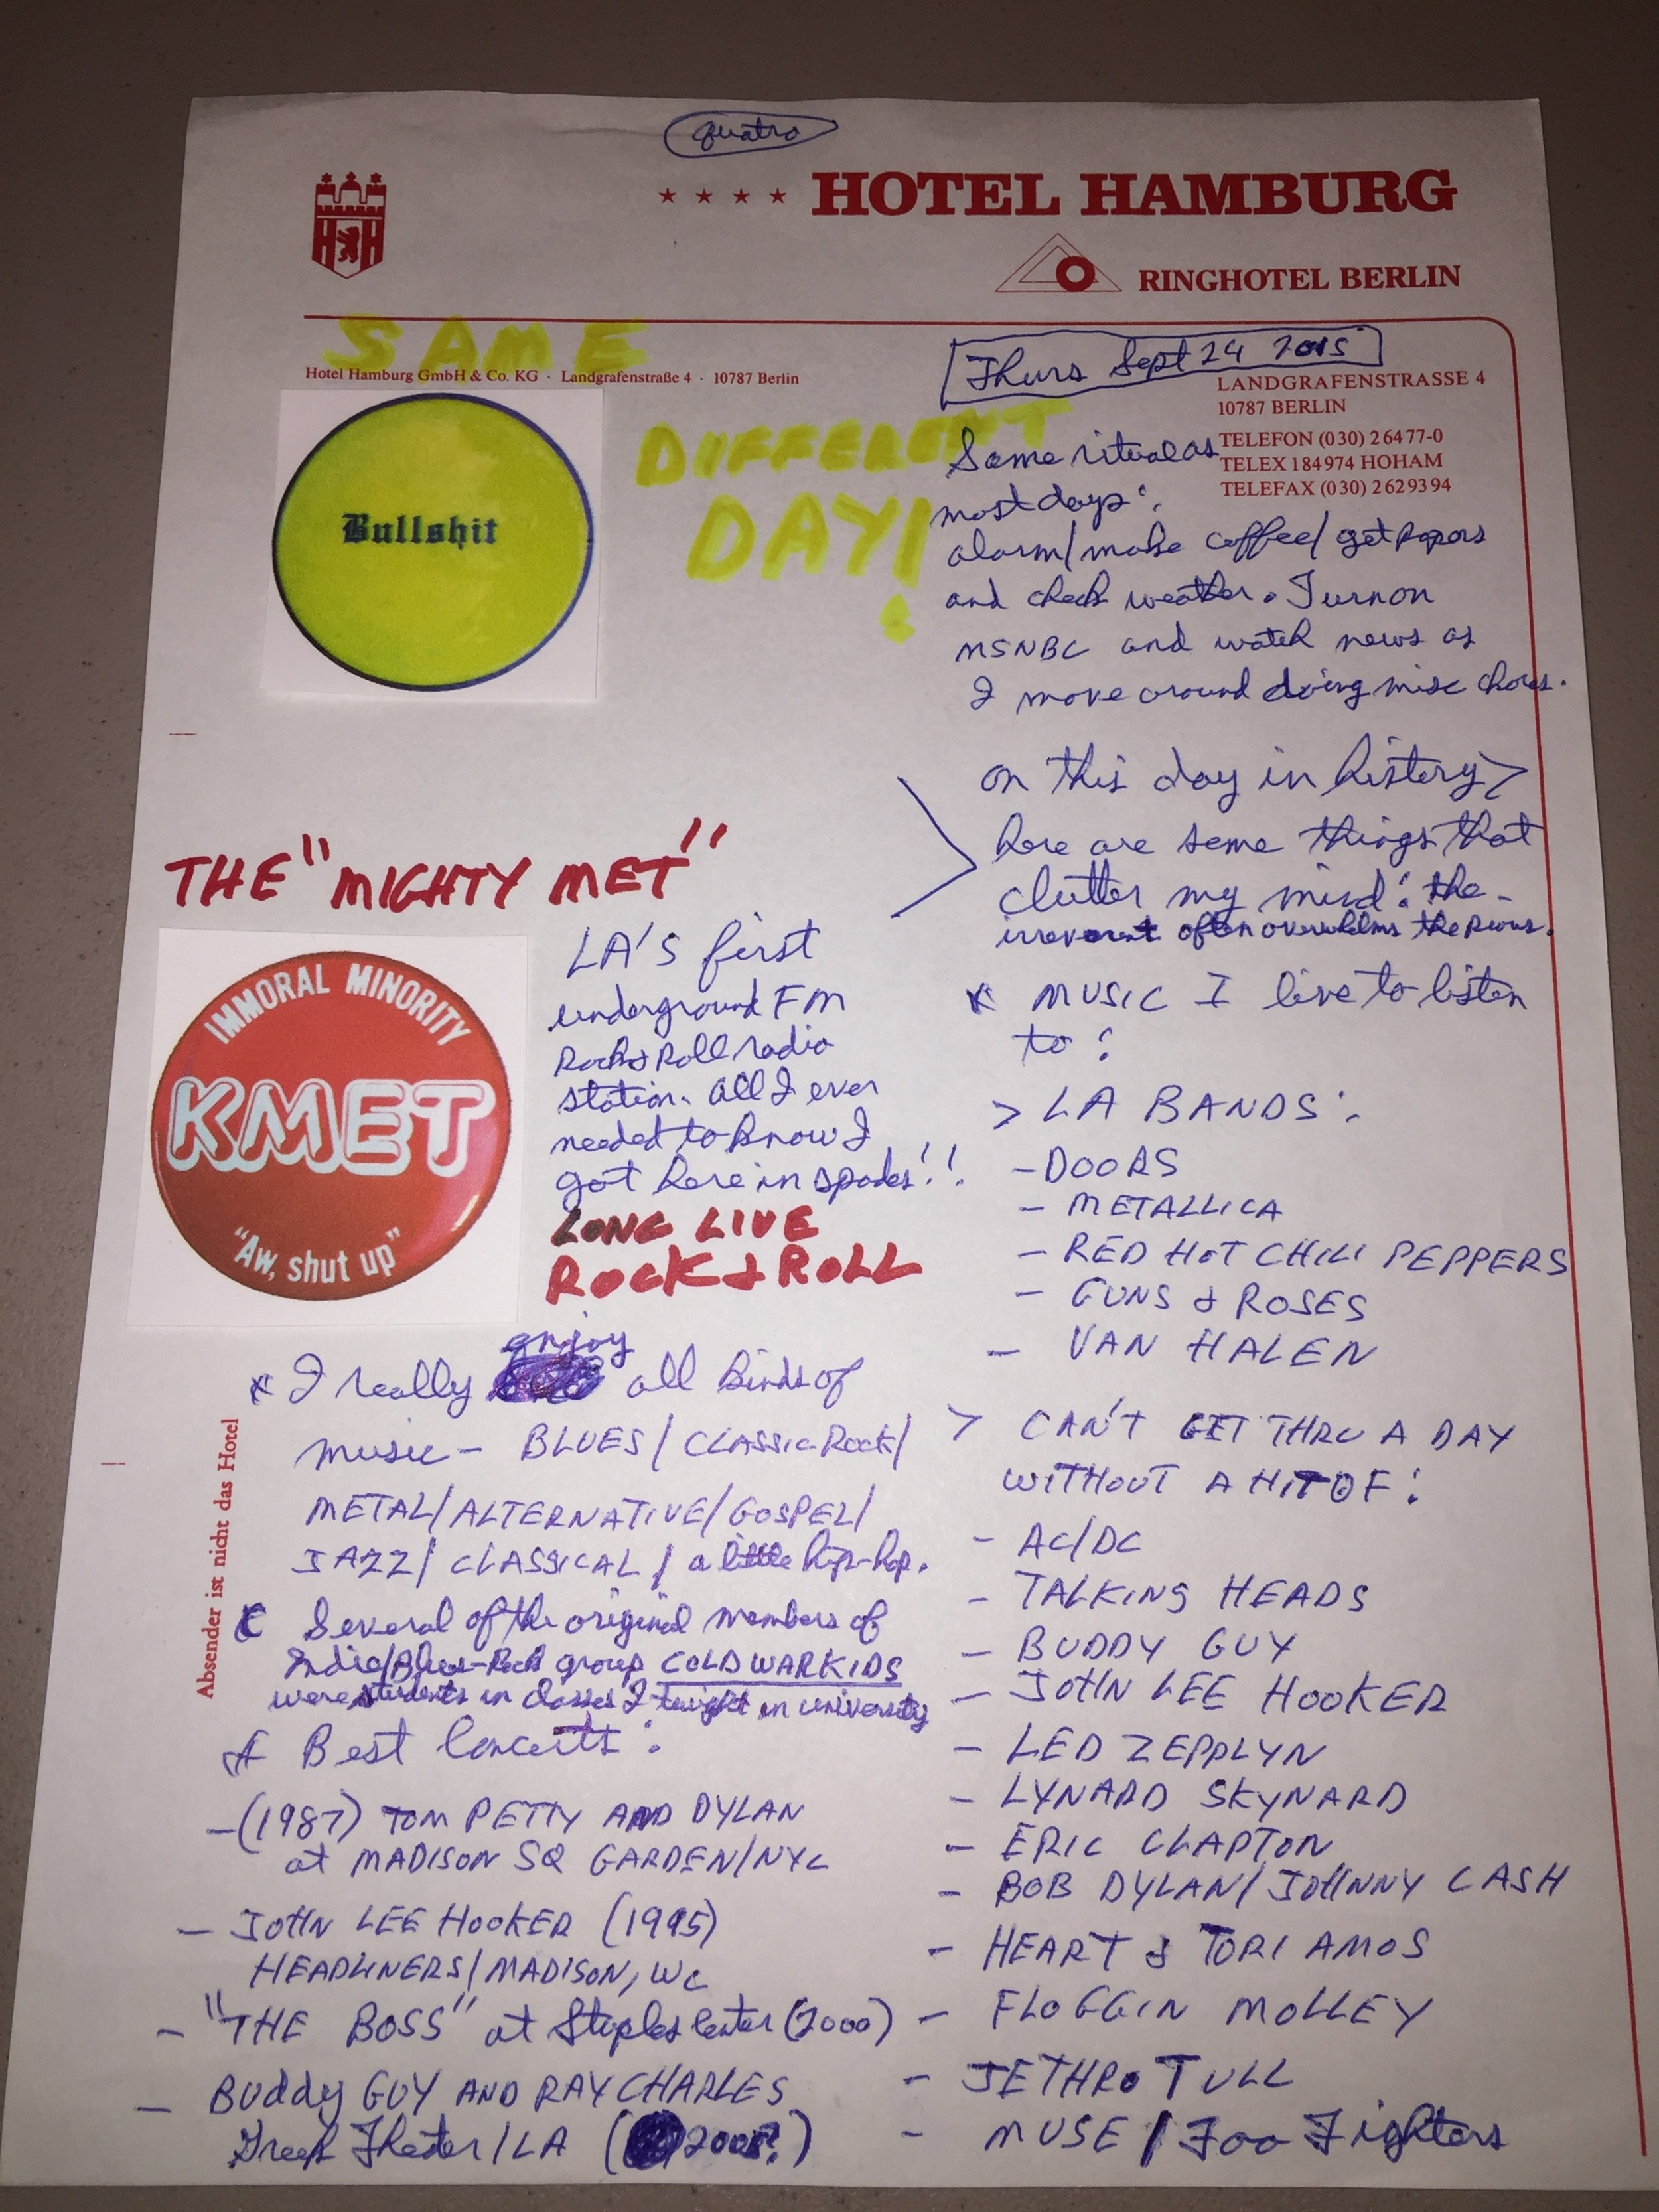 quatro
★ ★ ★ ★ HOTEL HAMBURG
RINGHOTEL BERLIN
SAME
Hotel Hamburg GmbH & Co. KG · Landgrafenstraße 4 · 10787 Berlin
Bullshit
DIFFERENT
DAY!
Thurs Sept 24 2015
LANDGRAFENSTRASSE 4
10787 BERLIN
TELEFON (030) 26477-0
TELEX 184974 HOHAM
TELEFAX (030) 2629394
Same ritual as
most days:
alarm/make coffee/get papers
and check weather. Turn on
MSNBC and watch news as
I move around doing misc chores.
on this day in history >
here are some things that
clutter my mind: the
irreverent often overwhelms the pious.
* MUSIC I live to listen
to:
> LA BANDS:
- DOORS
- METALLICA
- RED HOT CHILI PEPPERS
- GUNS & ROSES
- VAN HALEN
> CAN'T GET THRU A DAY
WITHOUT A HIT OF:
- AC/DC
- TALKING HEADS
- BUDDY GUY
- JOHN LEE HOOKER
- LED ZEPPLYN
- LYNARD SKYNARD
- ERIC CLAPTON
- BOB DYLAN/JOHNNY CASH
- HEART & TORI AMOS
- FLOGGIN MOLLEY
- JETHRO TULL
- MUSE / Foo Fighters
THE "MIGHTY MET"
IMMORAL MINORITY
KMET
"Aw, shut up"
LA'S first
underground FM
Rock & Roll radio
station. All I ever
needed to know I
got here in spades!!
LONG LIVE
ROCK & ROLL
enjoy
* I really all kinds of
music - BLUES/CLASSIC ROCK/
METAL/ALTERNATIVE/GOSPEL/
JAZZ/CLASSICAL/a little hip-hop.
* Several of the original members of
Indie/Blues-Rock group COLD WAR KIDS
were students in classes I taught in university
* Best Concerts:
- (1987) TOM PETTY AND DYLAN
at MADISON SQ GARDEN/NYC
- JOHN LEE HOOKER (1995)
HEADLINERS/MADISON, WC
- "THE BOSS" at Staples Center (2000)
- Buddy GUY AND RAY CHARLES
Greek Theater/LA (2005?)
Absender ist nicht das Hotel